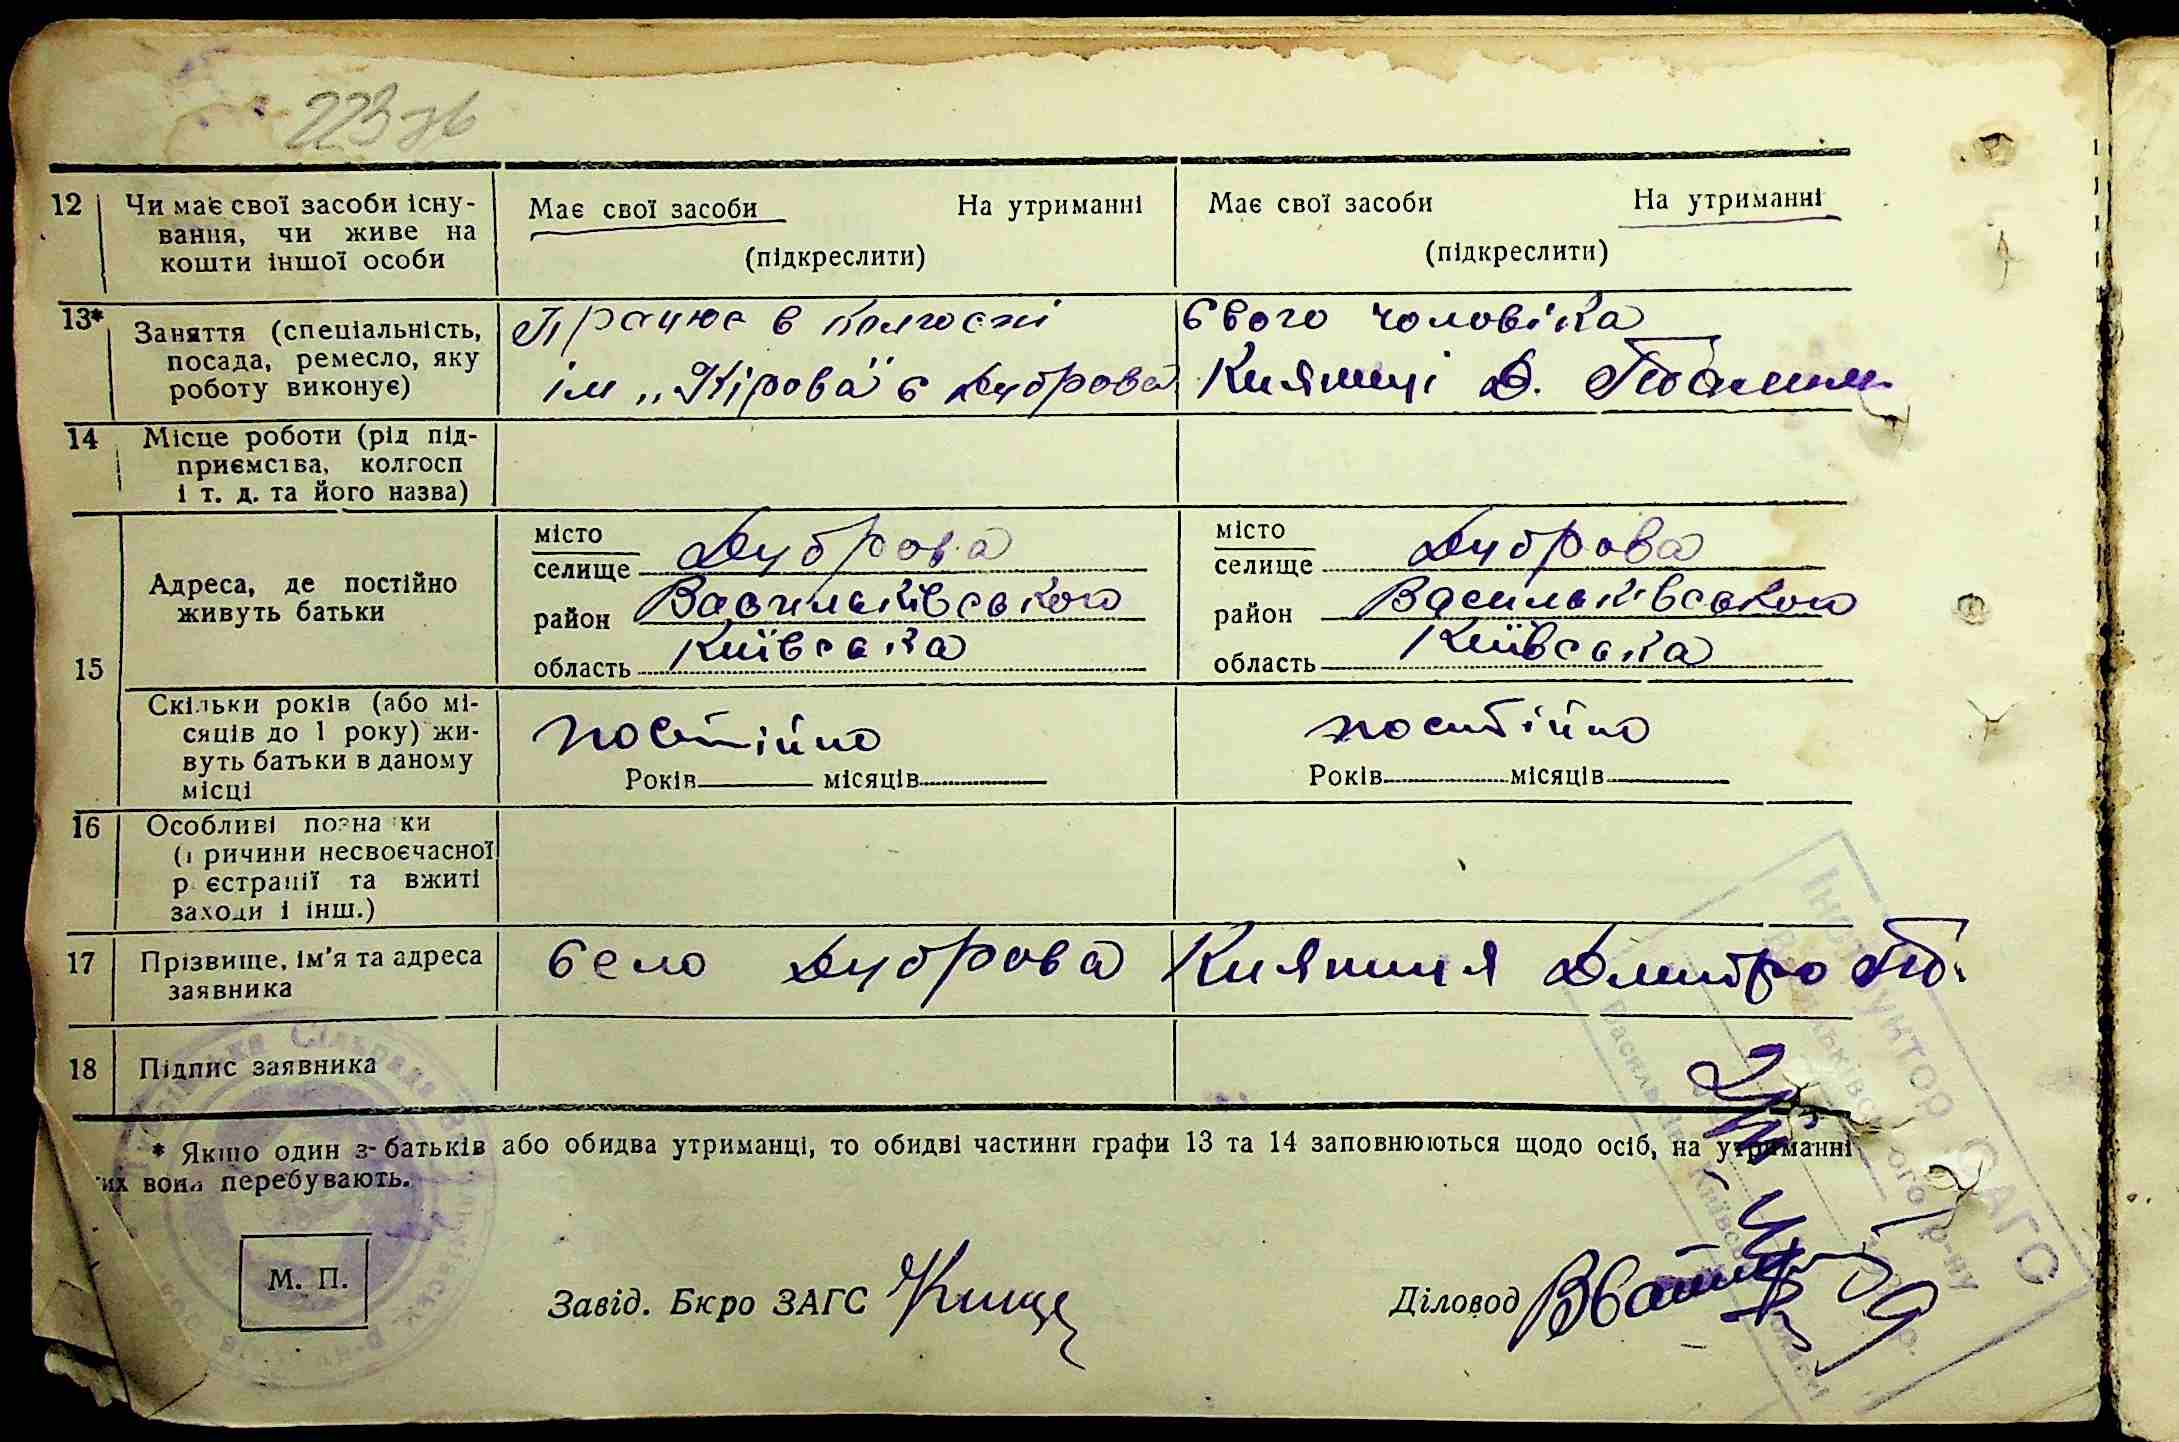 223зв
12 Чи має свої засоби існу- Має свої засоби На утриманні Має свої засоби На утриманні
вання, чи живе на
кошти іншої особи (підкреслити) (підкреслити)
13* Заняття (спеціальність, Працює в колгоспі свого чоловіка
посада, ремесло, яку
роботу виконує) ім „Кірова" с Дуброва Кияниці Д.
14 Місце роботи (рід під-
приємства, колгосп
і т. д. та його назва)
15 Адреса, де постійно живуть батьки
місто Дуброва місто Дуброва
селище селище
район Васильківського район Васильківського
область Київська область Київська
Скільки років (або мі- постійно постійно
сяців до 1 року) жи-
вуть батьки в даному Років місяців Років місяців
місці
16 Особливі познаки
(причини несвоєчасної
реєстрації та вжиті
заходи і інш.)
17 Прізвище, ім'я та адреса село Дуброва Кияниця Дмитро
заявника
18 Підпис заявника
* Якщо один з батьків або обидва утриманці, то обидві частини графи 13 та 14 заповнюються щодо осіб, на утриманні
их вони перебувають.
М. П.
Завід. Бюро ЗАГС Діловод
Інструктор ЗАГС
Васильківського р-ну